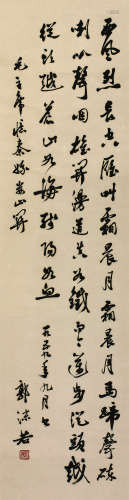 西風烈長空雁叫霜晨月霜晨月馬蹄聲碎
喇叭聲咽雄關漫道真如鐵而今邁步從頭越
從頭越蒼山如海殘陽如血
毛主席憶秦娥婁山關
一九五九年九月
郭沫若